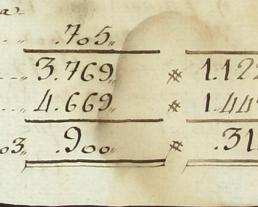 .705,,
3.769,, * 1.12
4.669,, * 1.44
03,, .900 * .31